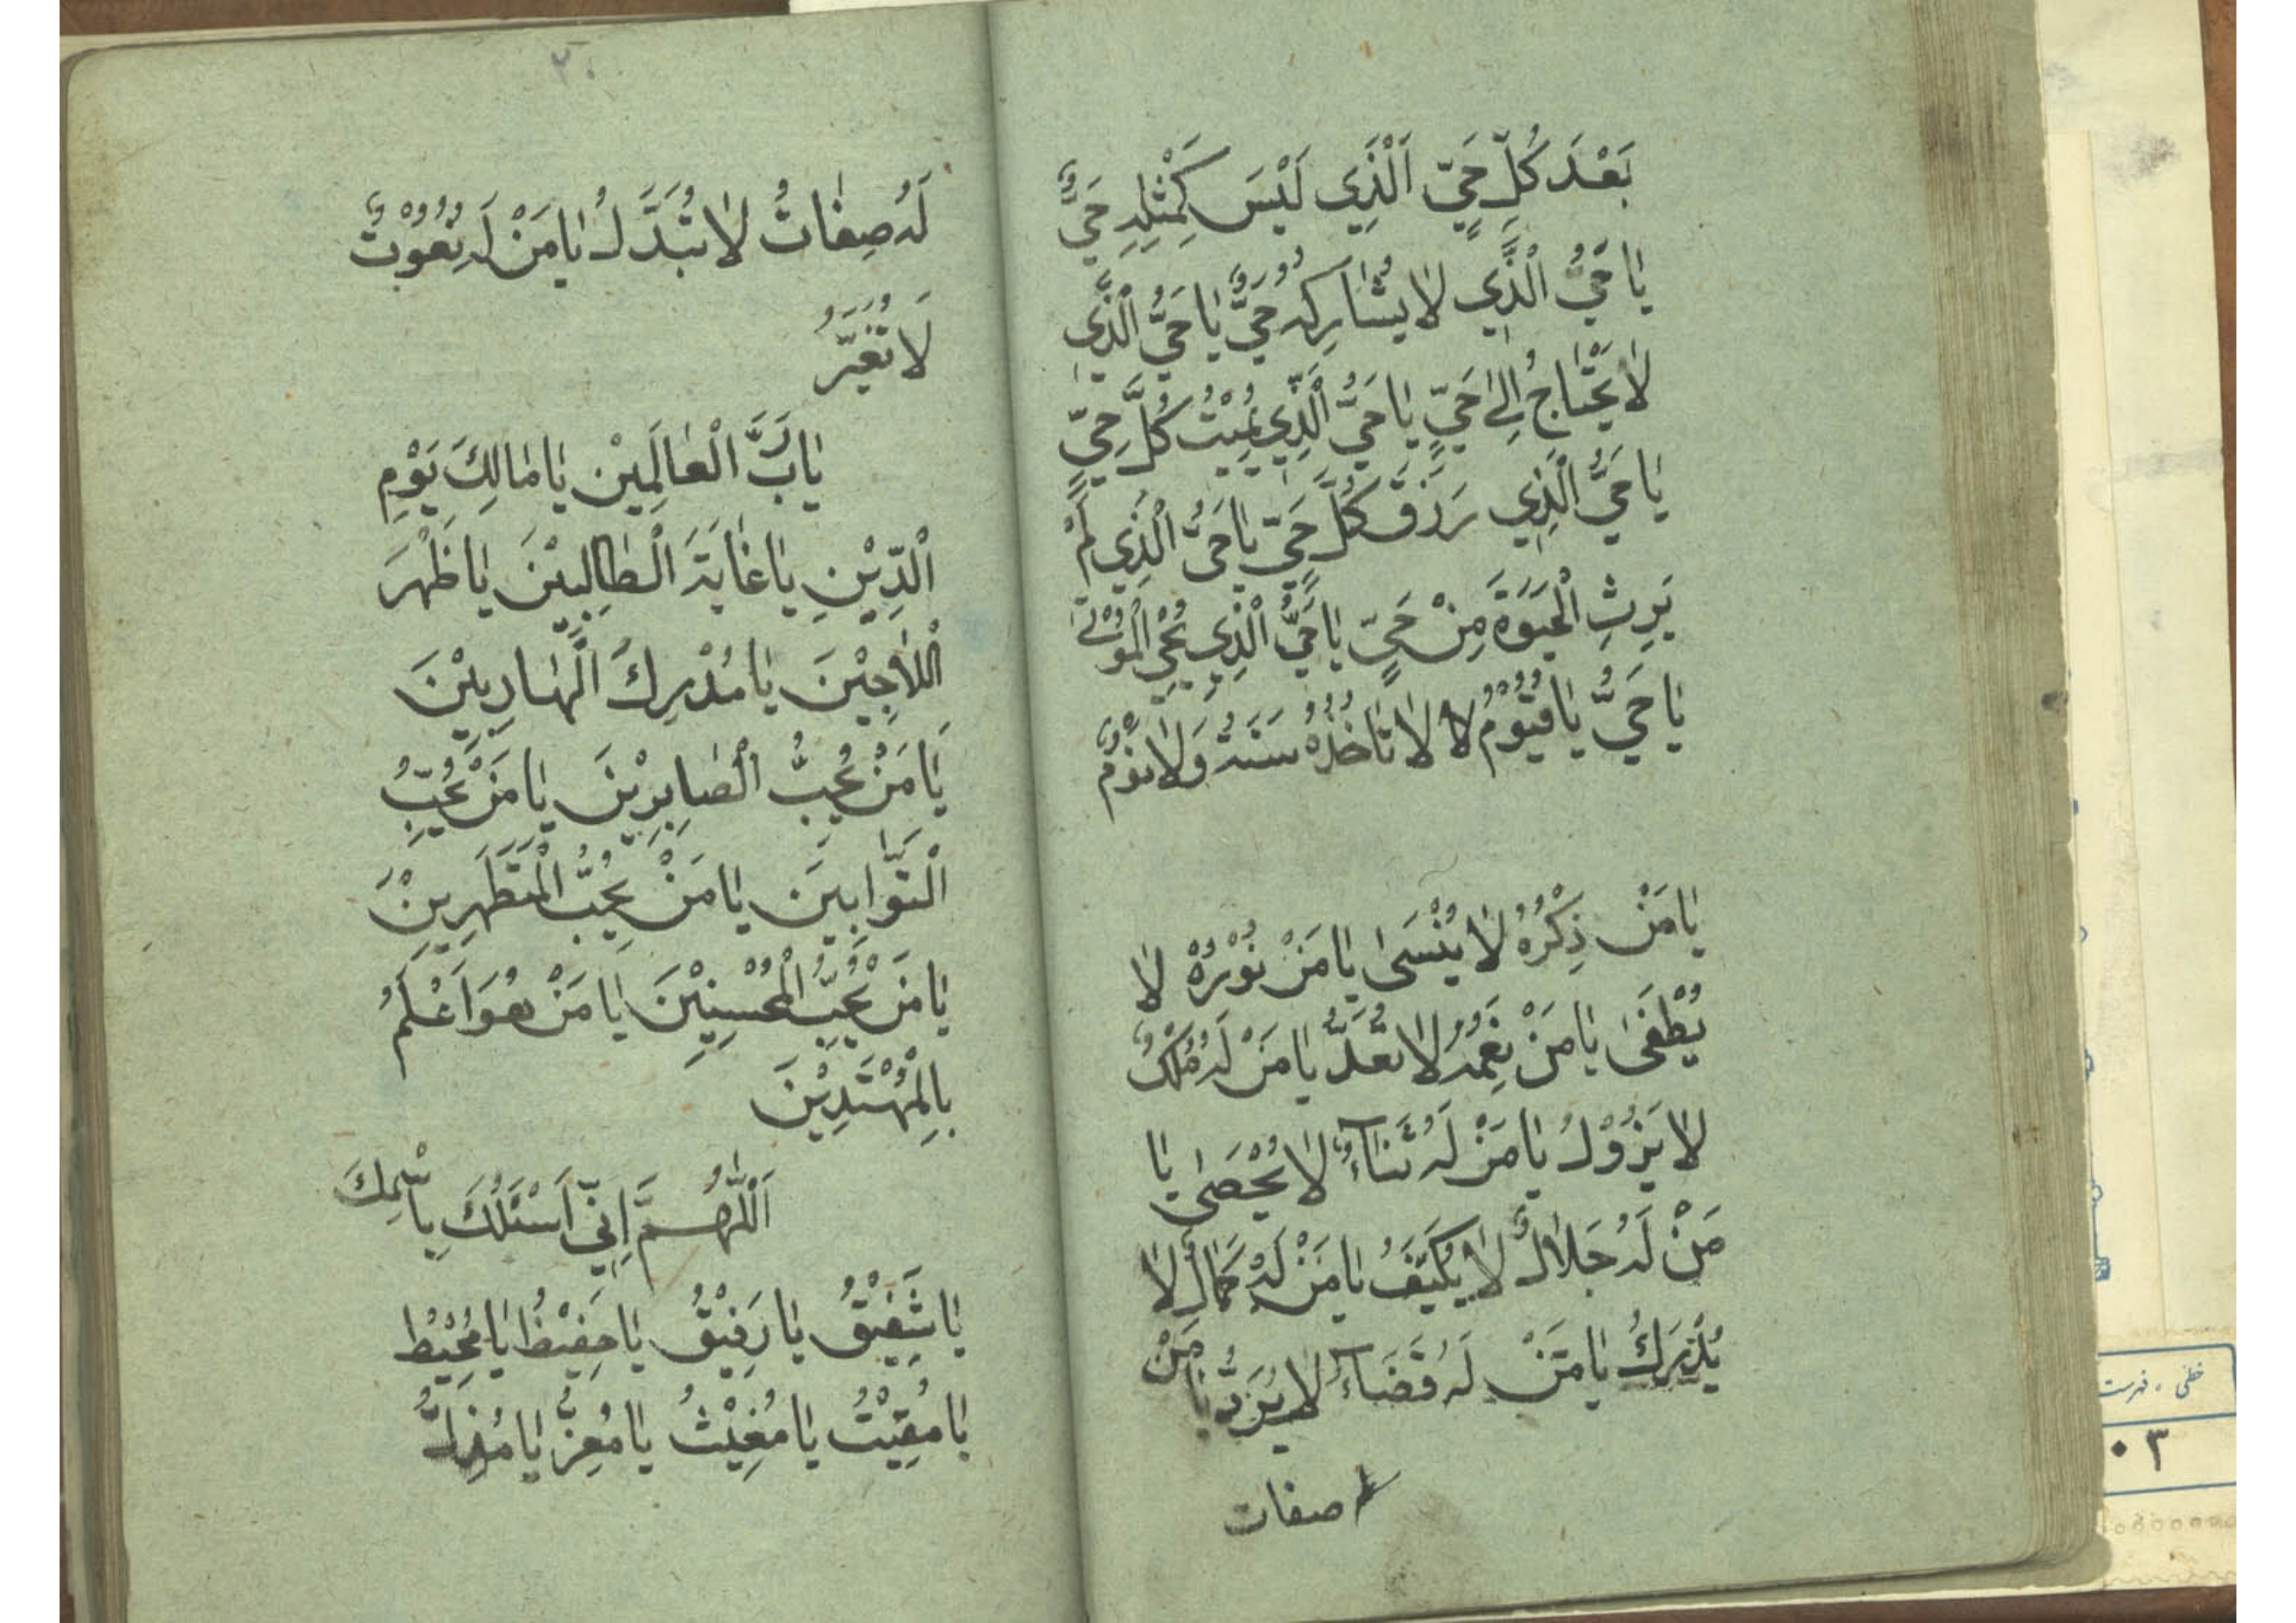 بَعْدَ كُلِّ حَيٍّ اَلَّذِي لَيْسَ كَمِثْلِهِ حَيٌّ
يٰا حَيُّ الَّذِي لٰا يُشٰارِكُهُ حَيٌّ يٰا حَيُّ الَّذِي
لٰا يَحْتٰاجُ اِلىٰ حَيٍّ يٰا حَيُّ الَّذِي يُمِيْتُ كُلَّ حَيٍّ
يٰا حَيُّ الَّذِي رَزَقَ كُلَّ حَيٍّ يٰا حَيُّ الَّذِي لَمْ
يَرِثِ الْحَيَوةَ مِنْ حَيٍّ يٰا حَيُّ الَّذِي يُحْيِ الْمَوْتىٰ
يٰا حَيُّ يٰا قَيُّوْمُ لا لٰا تَاخُذُهُ سَنَةٌ وَلٰا نَوْمٌ
يٰا مَنْ ذِكْرُهُ لٰا يُنْسَىٰ يٰا مَنْ نُوْرُهُ لٰا
يُطْفَىٰ يٰا مَنْ نِعَمُهُ لٰا تُعَدُّ يٰا مَنْ لَهُ مُلْكٌ
لٰا يَزُوْلُ يٰا مَنْ لَهُ ثَنَآءٌ لٰا يُحْصَىٰ يٰا
مَنْ لَهُ جَلٰالٌ لٰا يُكَيَّفُ يٰا مَنْ لَهُ كَمٰالٌ لٰا
يُدْرَكُ يٰا مَنْ لَهُ قَضَآءٌ لٰا يُرَدُّ يٰا مَنْ
له صفات
۲۰
لَهُ صِفٰاتٌ لٰا تُبَدَّلُ يٰا مَنْ لَهُ نُعُوْتٌ
لَا تُغَيَّرُ
يٰا رَبَّ الْعٰالَمِيْن يٰا مٰالِكَ يَوْمِ
الْدِّيْنِ يٰا غٰايَةَ الْطٰالِبِيْنَ يٰا ظَهْرَ
اْللّٰاجِيْنَ يٰا مُدْرِكَ الْهٰارِبِيْنَ
يٰا مَنْ يُحِبُّ الْصٰابِرِيْنَ يٰا مَنْ يُحِبُّ
الْتَوّٰابِيَن يٰا مَنْ يُحِبُّ الْمُتَطَهِرِيْنَ
يٰا مَنْ يُحِبُّ الْمُحْسِنِيْنَ يٰا مَنْ هُوَ اَعْلَمُ
بِالْمُهْتَدِيْنَ
اَللّٰهُمَّ اِنّي اَسْئَلُكَ بِاسْمِكَ
يٰا شَفِيْقُ يٰا رَفِيْقُ يٰا حَفِيْظُ يٰا مُحِيْطُ
يٰا مُقِيْتُ يٰا مُغِيْثُ يٰا مُعِزُّ يٰا مُذِلُّ
خطی . فهرست
۰۳